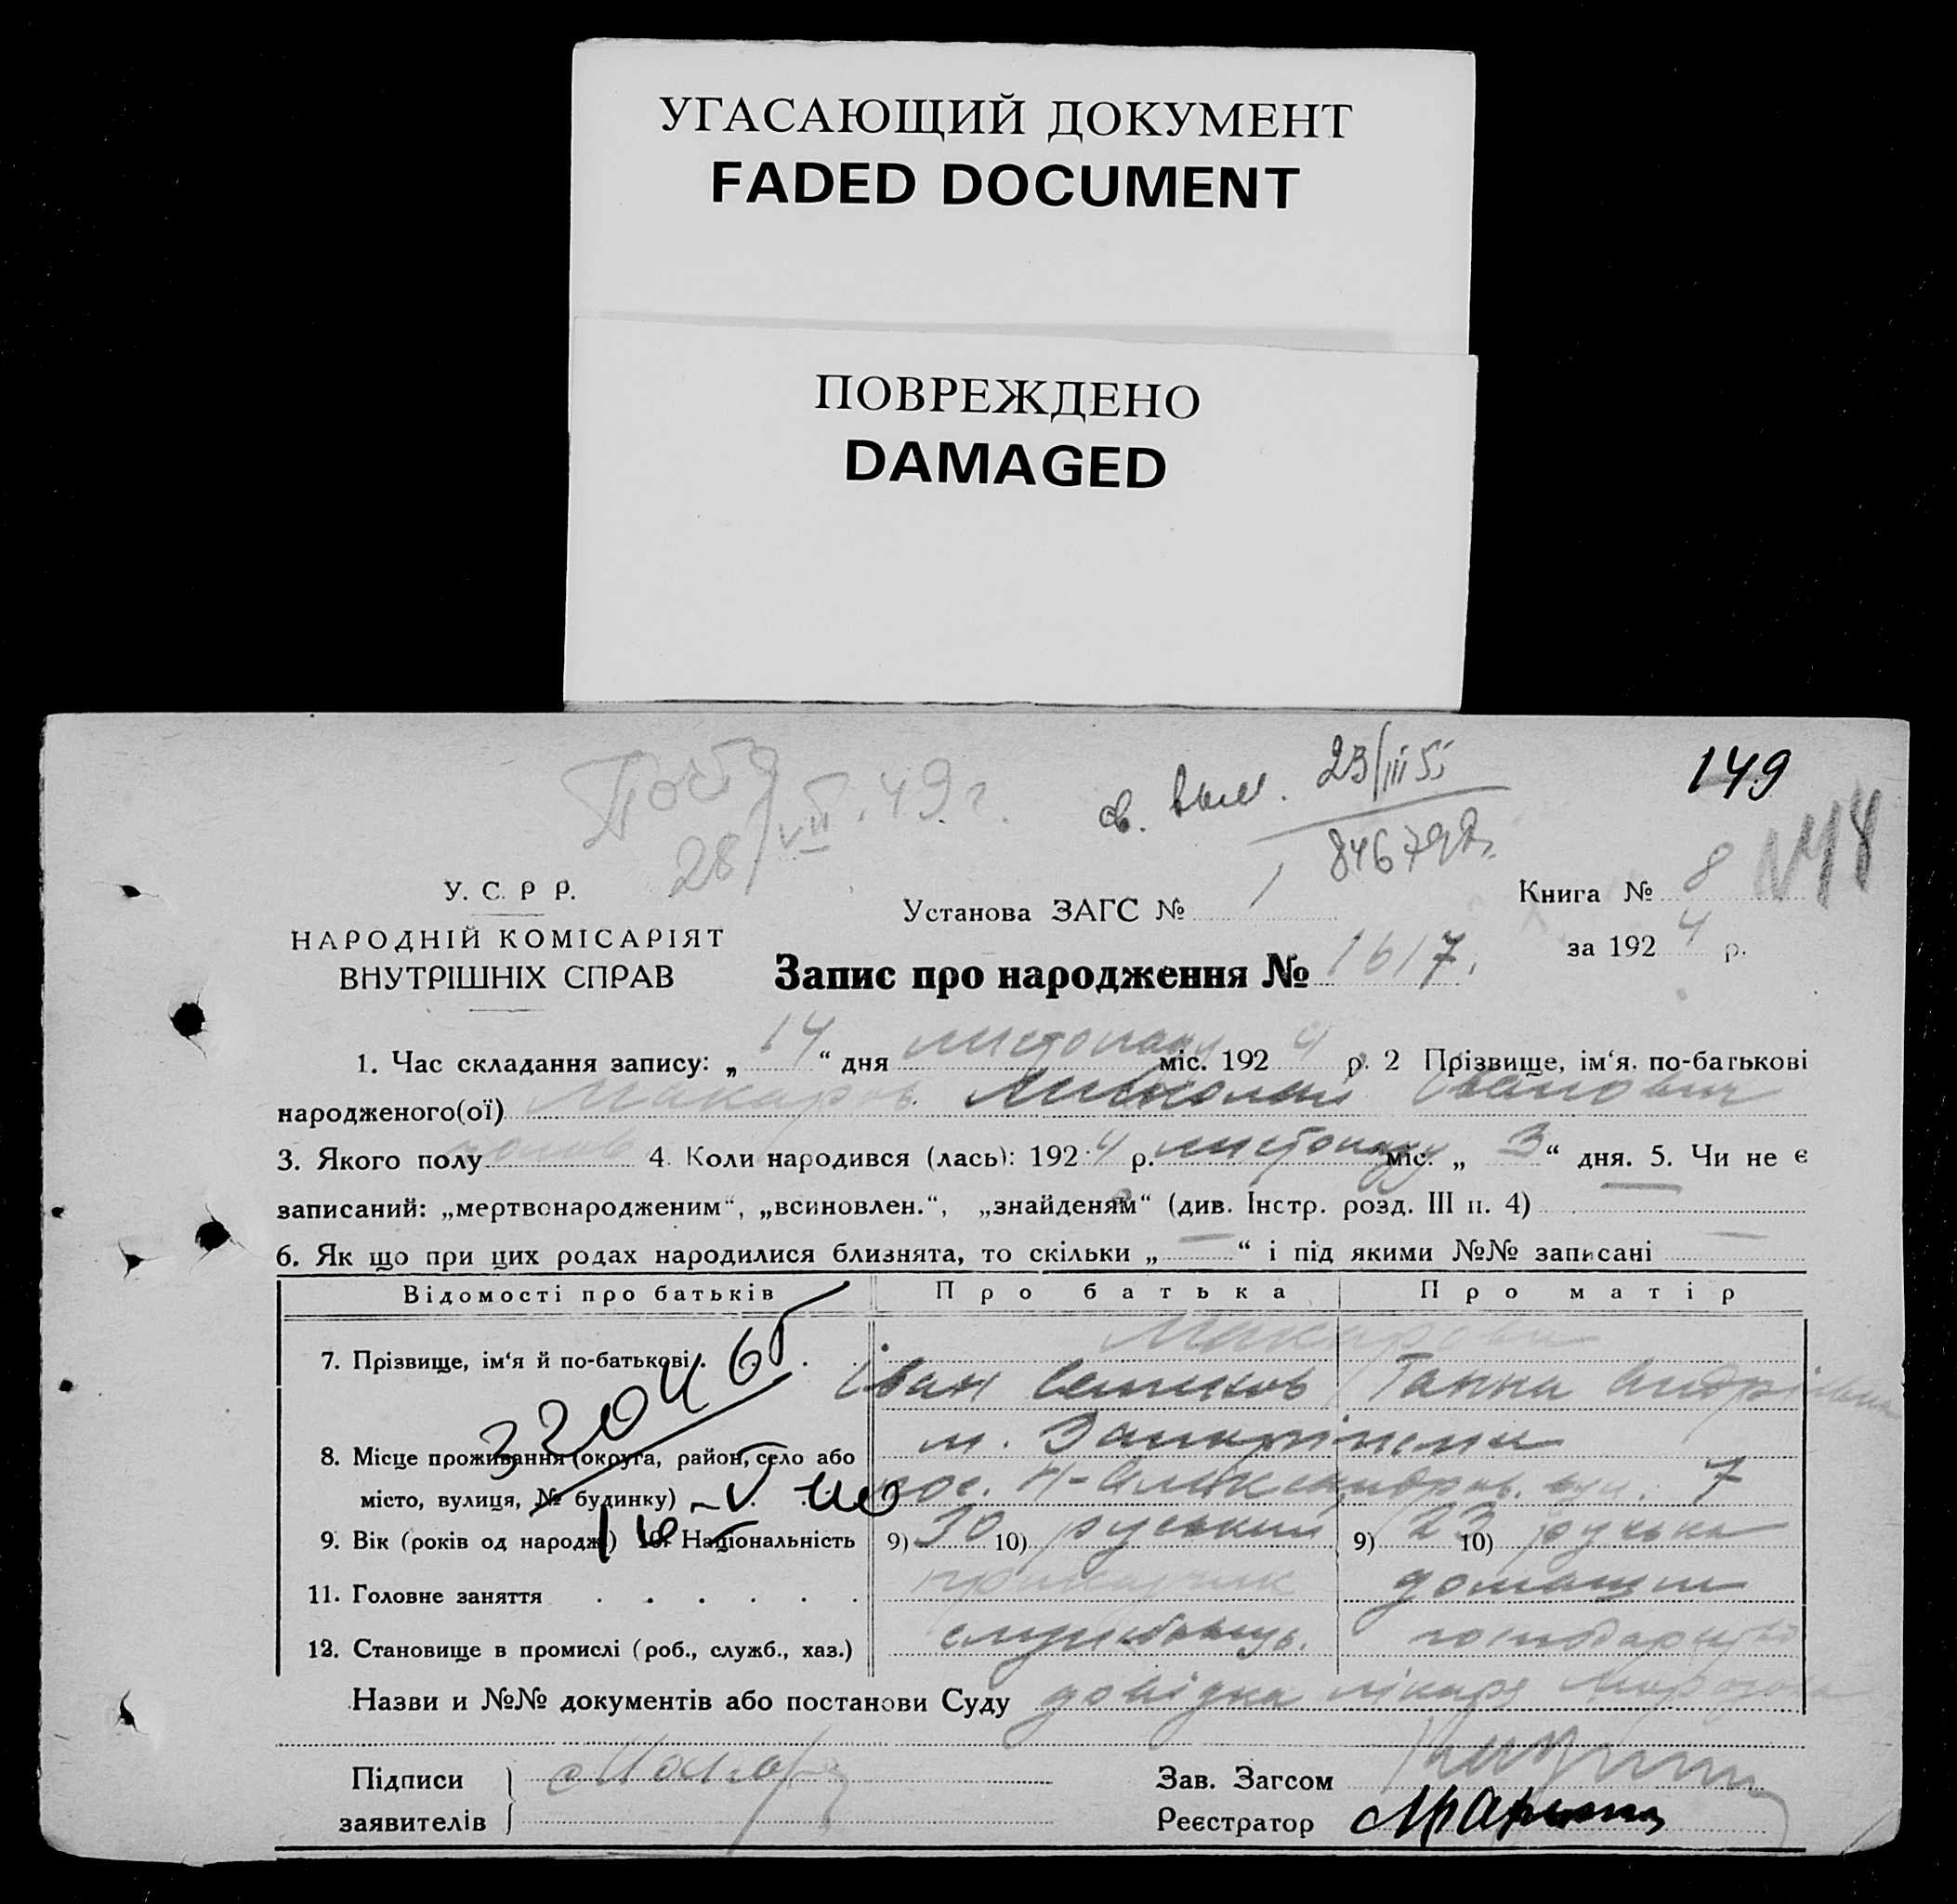 УГАСАЮЩИЙ ДОКУМЕНТ
FADED DOCUMENT
ПОВРЕЖДЕНО
DAMAGED
149
28/VII.49 г. 23/III 5
У. С. Р Р. Установа ЗАГС № 1 Книга № 8
НАРОДНІЙ КОМІСАРІЯТ за 1924 р.
ВНУТРІШНІХ СПРАВ Запис про народження № 1617.
1. Час складання запису: „14“ дня листопаду міс. 1924 р. 2 Прізвище, ім‘я. по-батькові
народженого(ої) Макаров Миколай Іванович
3. Якого полу чолов 4. Коли народився (лась): 1924 р. листопаду міс. „3“ дня. 5. Чи не є
записаний: „мертвонародженим“, „всиновлен.“, „знайденям“ (див. Інстр. розд. III п. 4) —
6. Як що при цих родах народилися близнята, то скільки „—“ і під якими №№ записані —
Відомості про батьків Про батька Про матір
Макарови
7. Прізвище, ім‘я й по-батькові . . . Іван Семенов Ганна Андріївна
33046
8. Місце проживання (округа, район, село або
місто, вулиця, № будинку) 7
9. Вік (років од народж.) 10. Національність 9) 30 10) руський 9) 23 10) руська
11. Головне заняття . . . . . . домашнє
12. Становище в промислі (роб., служб., хаз.) службовець. господарство
Назви и №№ документів або постанови Суду довідка лікаря
Підписи Зав. Загсом
заявителів Реєстратор